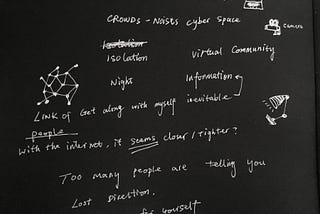 CROWDS - NOISES cyber space
Camera
ISOlation
Virtual Community
Night
Information
Link of
people
Get along with myself
inevitable
With the internet, it seems closer / tighter?
Too many people are telling you
Lost Direction.
for yourself